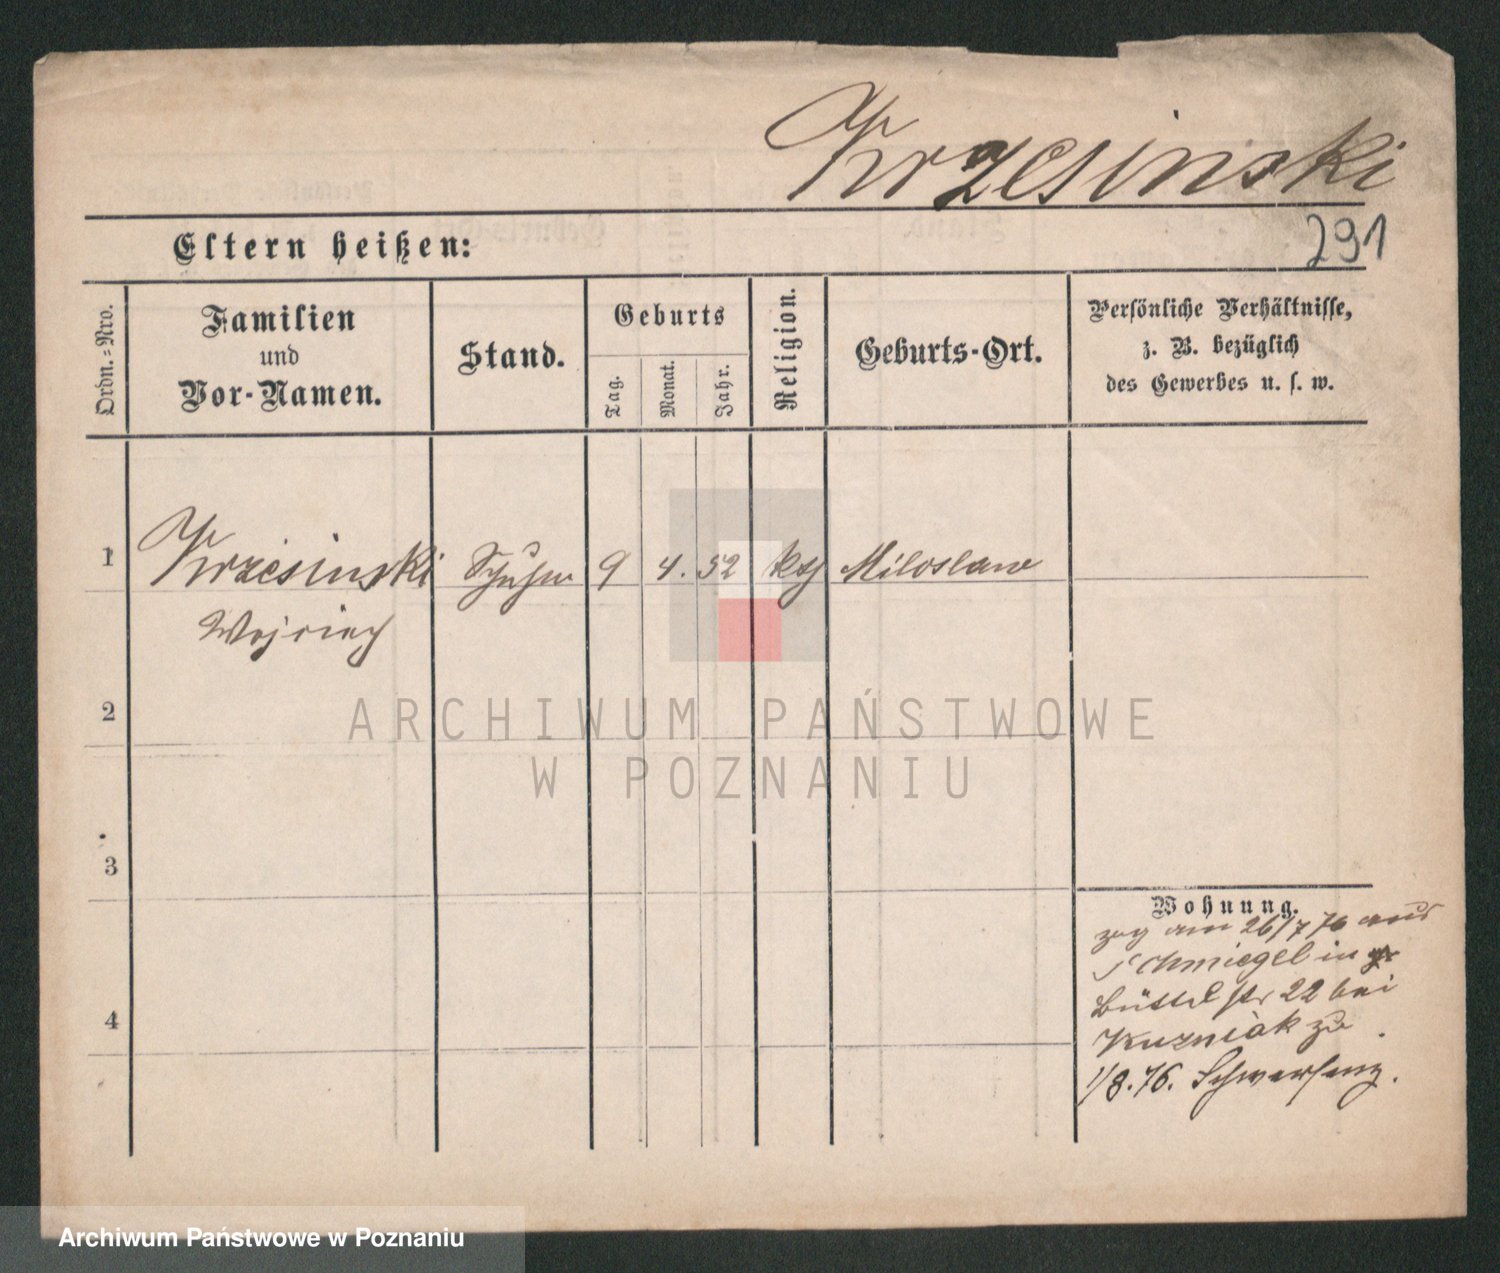 Krzesinski
291
Eltern heißen:
Ordn.=Nro.
Familien
und
Vor-Namen.
Stand.
Geburts
Tag.
Monat.
Jahr.
Religion.
Geburts-Ort.
Persönliche Verhältnisse,
z. B. bezüglich
des Gewerbes u. s. w.
1 Krzesinski 9 4. 52 kth Miloslaw
Wojciech
2
ARCHIWUM PAŃSTWOWE
W POZNANIU
3
Wohnung.
zog am 26/7 76 aus
Schmiegel in
Büttel str 22 bei
4
Kuzniak zu
1/8.76. Schwersenz.
Archiwum Państwowe w Poznaniu